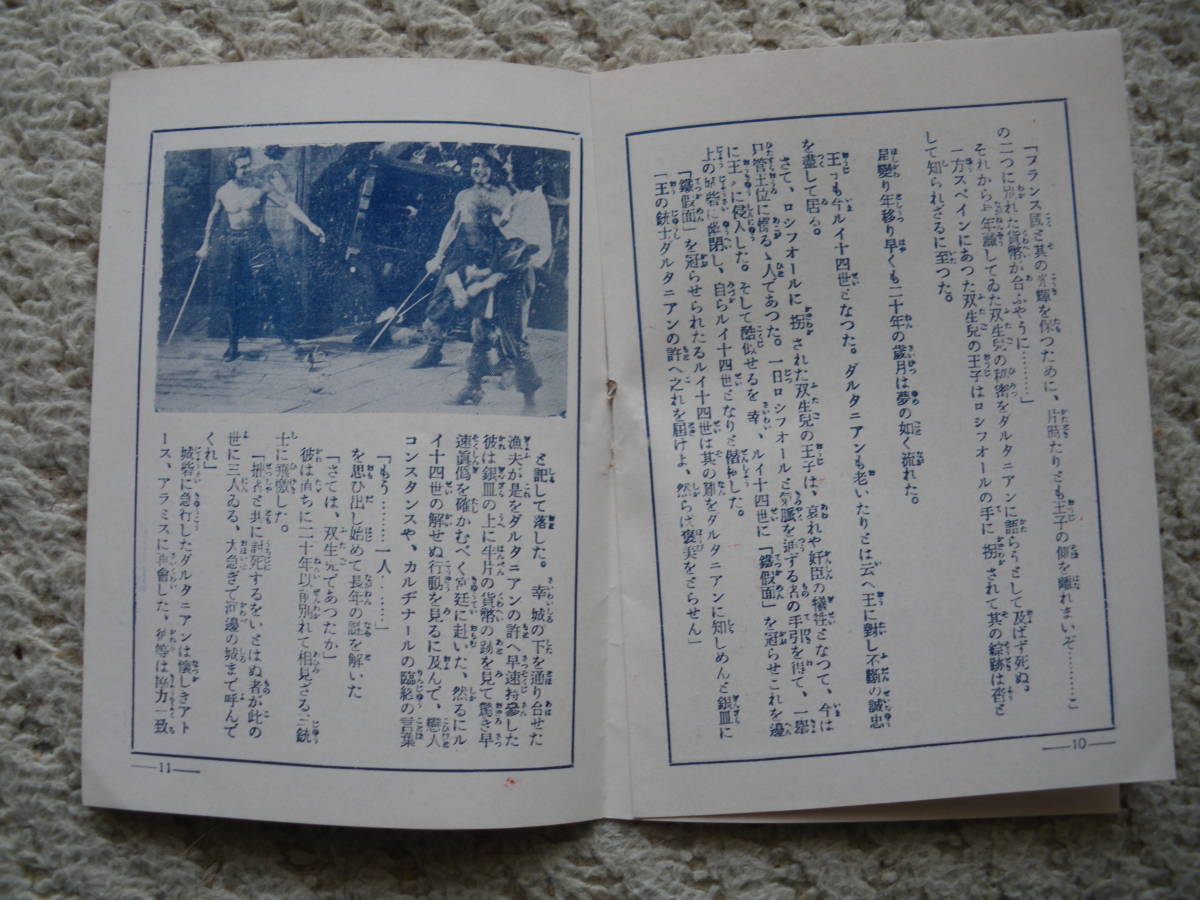 「フランス國と其の光輝を保つために、片時たりとも王子の側を離れまいぞ………こ
の二つに別れた貨幣が合ふやうに………」
それから少年離してゐた双生兒の秘密をダルタニアンに語らうとして及ばず死ぬ。
一方スペインにあつた双生兒の王子はロシフオールの手に拐されて其の綜跡は杳と
して知られざるに至つた。
星變り年移り早くも二十年の歲月は夢の如く流れた。
王子も今ルイ十四世となつた。ダルタニアンも老いたりとは云へ王に對し不斷の誠忠
を盡して居る。
さて、ロシフオールに拐された双生兒の王子は、哀れや奸臣の犧牲となつて、今は
只管王位に憬るゝ人であつた。一日ロシフオールと氣脈を通ずる者の手引を得て、一擧
に王に侵入した。そして酷似せるを幸、ルイ十四世に「鐵假面」を冠らせこれを邊
上の城砦に幽閉し、自らルイ十四世となりと僭稱した。
「鐵假面」を冠らせられたるルイ十四世は其の難をダルタニアンに知しめんと銀皿に
「王の銃士ダルタニアンの許へ之れを届けよ、然らば褒美をとらせん」
―10―
と記して落した。幸城の下を通り合せた
漁夫が是をダルタニアンの許へ早速持參した
彼は銀皿の上に半片の貨幣の跡を見て驚き早
速眞僞を確かむべく宮廷に赴いた、然るにル
イ十四世の解せぬ行動を見るに及んで、戀人
コンスタンスや、カルヂナールの臨終の言葉
「もう………一人……」
を思ひ出し始めて長年の謎を解いた
「さては、双生兒であつたか」
彼は直ちに二十年以前別れて相見ざる三銃
士に飛檄した。
「拙者と共に討死するをいとはぬ者が此の
世に三人ゐる、大急ぎで河邊の城まで呼んで
くれ」
城砦に急行したダルタニアンは懷しきアト
ース、アラミスに再會した、彼等は協力一致
―11―